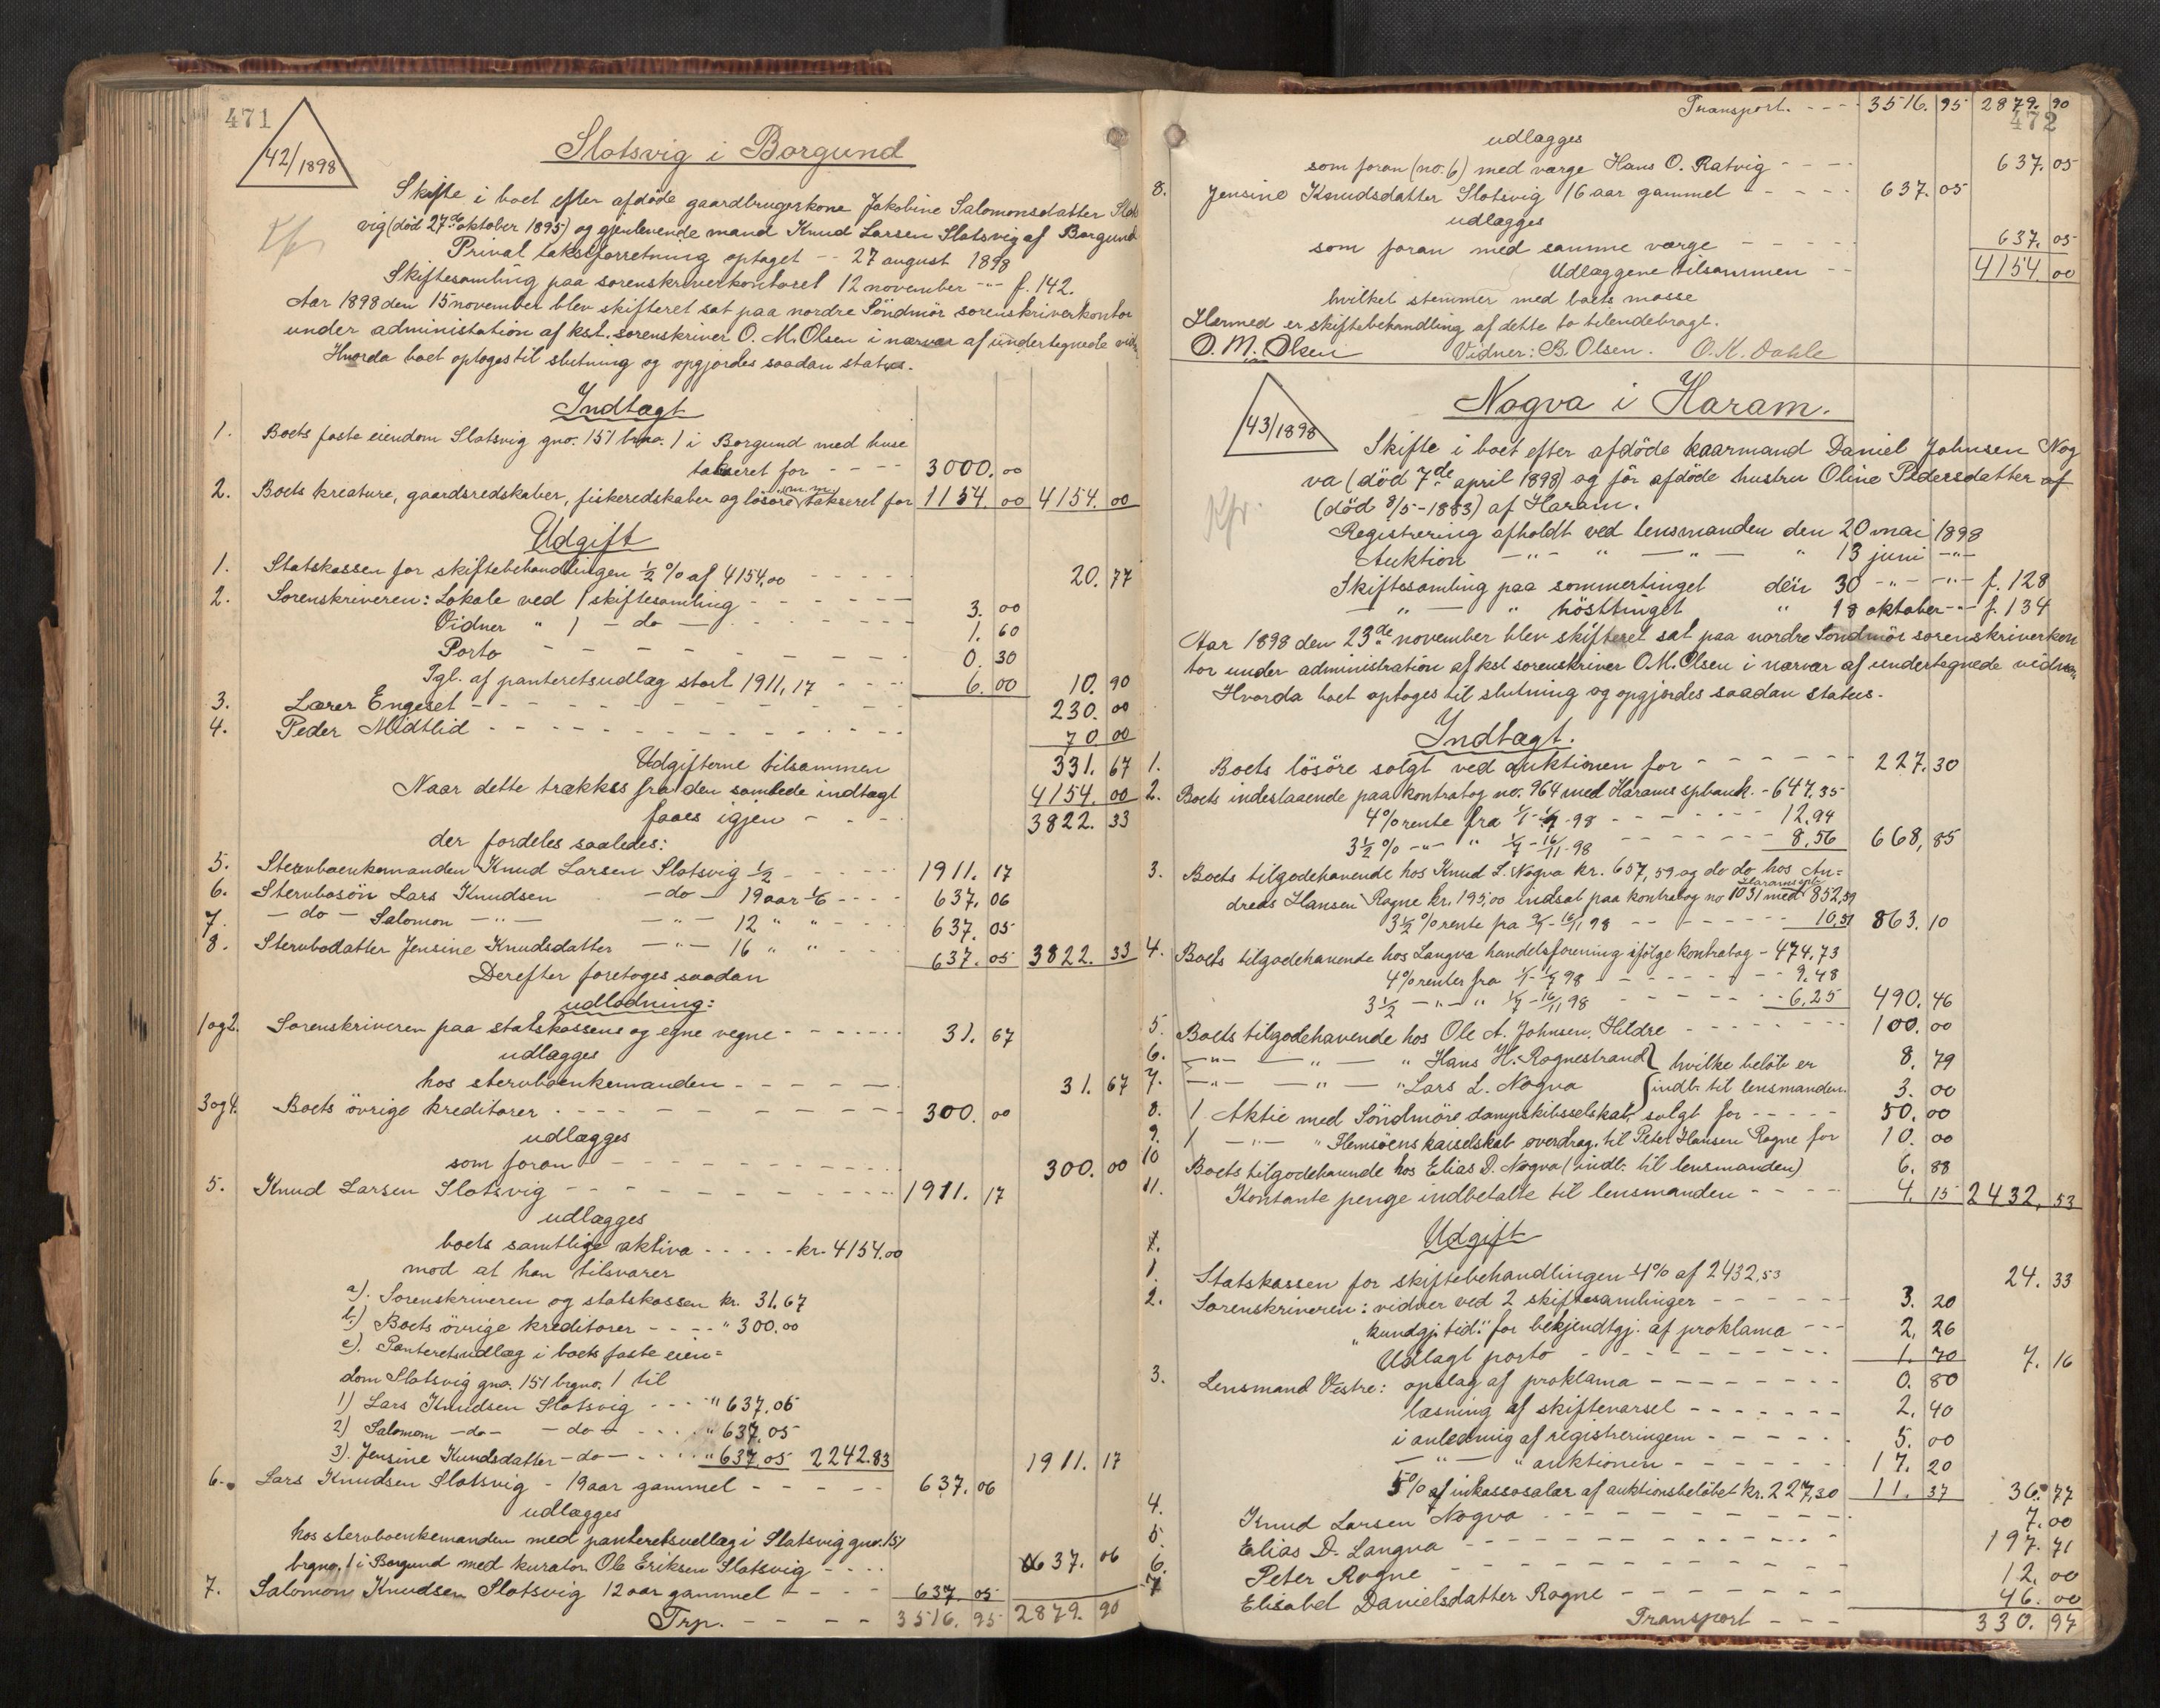 471
42/1898
Slotsvig i Borgund
Skifte i boet efter afdöde gaardbrugerkone Jakobine Salomonsdatter Slots
vig (död 27de oktober 1895) og gjenlevende mand Knud Larsen Slotsvig af Borgund
Privat takstforretning optaget -- 27 august 1898
Skiftesamling paa sorenskriverkontoret 12 november -"- f. 142.
Aar 1898 den 15 november blev skifteret sat paa nordre Söndmör sorenskriverkontor
under administation af kst. sorenskriver O. M. Olsen i nærvær af undertegnede vidn
Hvorda boet optoges til slutning og opgjordes saadan status.
Indtægt
1. Boets faste eiendom Slotsvig gno. 151 brno. 1 i Borgund med huse
takseret for - - - - 3000. 00
2. Boets kreature, gaardsredskaber, fiskeredskaber og lösöre m.m. takseret for 1154. 00 4154. 00
Udgift
1. Statskassen for skiftebehandlingen ½ % af 4154,00 - - - - 20. 77
2. Sorenskriveren: Lokale ved 1 skiftesamling - - - - - - 3. 00
Vidner " 1 - do - - - - - 1. 60
Porto - - - - - - - - 0. 30
Tgl. af panteretsudlæg stort 1911,17 - - - - 6. 00 10. 90
3. Lærer Engeset - - - - - - - - 230. 00
4. Peder Midtlid - - - - - - - - 70 00
Udgifterne tilsammen 331. 67
Naar dette trækkes fra den samlede indtægt 4154. 00
faaes igjen - - - 3822. 33
der fordeles saaledes:
5. Stervboenkemanden Knud Larsen Slotsvig ½ - - - - 1911. 17
6. Stervbosön Lars Knudsen - do - 19 aar 1/6 - - - - 637. 06
7. - do - Salomon - " - - " - 12 " " - - - 637. 05
8. Stervbodatter Jensine Knudsdatter - " - 16 " " - - - 637. 05 3822. 33
Derefter foretoges saadan
udlodning:
1 og 2. Sorenskriveren paa statskassens og egne vegne - - - - - 31. 67
udlægges
hos stervboenkemanden - - - - - 31. 67
3 og 4. Boets övrige kreditorer - - - - - - - - 300. 00
udlægges
som foran - - - - - - - - 300. 00
5. Knud Larsen Slotsvig - - - - - - - - 1911. 17
udlægges
boets samtlige aktiva - - - - - kr. 4154.00
mod at han tilsvarer
a). Sorenskriveren og statskassen kr. 31.67
b.) Boets övrige kreditorer - - - - " 300.00
c). Panteretsudlæg i boets faste eien=
dom Slotsvig gno. 151 brgno. 1 til
1) Lars Knudsen Slotsvig - - - " 637.06
2) Salomom - do - - do - - - - " 637.05
3). Jensine Kundsdatter - do - - - - " 637.05 2242.83 1911. 17
6. Lars Knudsen Slotsvig - 19 aar gammel - - - - - 637. 06
udlægges
hos stervboenkemanden med panteretsudlæg i Slotsvig gno. 151
brgno. 1 i Borgund med kurator Ole Eriksen Slotsvig - - - - 637. 06
7. Salomom Knudsen Slotsvig 12 aar gammel - - - - 637. 05
Trp. - - - - 3516. 95 2879. 90
Transport. - - - - 3516. 95 2879. 90
472
udlægges
som foran (no. 6) med værge Hans O. Ratvig - - - - 637. 05
8. Jensine Knudsdatter Slotsvig 16 aar gammel - - - - 637. 05
udlægges
som foran med samme værge - - - - 637. 05
Udlæggene tilsammen - - 4154. 00
hvilket stemmer med boets masse
Hermed er skiftebehandling af dette bo tilendebragt.
O. M. Olsen Vidner: B. Olsen. O. K. Dahle
43/1898
Nogva i Haram.
Skifte i boet efter afdöde kaarmand Daniel Johnsen Nog
va (död 7de april 1898) og för afdöde hustru Oline Pedersdatter af
(död 8/5-1883) af Haram.
Kfr.
Registrering afholdt ved lensmanden den 20 mai 1898
Auktion - " - " - " - " 13 juni - " -
Skiftesamling paa sommertinget den 30 - " - - " - f. 128
- " - " hösttinget " 18 oktober - " - f. 134
Aar 1898 den 23de november blev skifteret sat paa nordre Söndmör sorenskriverkon
tor under administration af kst sorenskriver O.M. Olsen i nærvær af undertegnede vidner
Hvorda boet optoges til slutning og opgjordes saadan status.
Indtægt.
1. Boets lösöre solgt ved auktionen for - - - - - - 227. 30
2. Boets indestaaende paa kontrabog no. 964 med Harams spbank. - 647,35
4% rente fra 1/1-1/7-98 - - - - - - 12.94
3½ % - " - " 1/7-16/11-98 - - - - - - 8,56 668, 85
3. Boets tilgodehavende hos Knud L. Nogva kr. 657,59 og do do hos An=
dreas Hansen Rogne kr. 195,00 indsat paa kontrabog no 1031 med Harams spb. 852,59
3½ % rente fra 9/7-16/11 98 - - - - - 10,51 863. 10
4. Boets tilgodehavende hos Langva handelsforening ifölge kontrabog - 474,73
4% renter fra 1/1-1/7 98 - - - - - - 9.48
3½ - " - " 1/7-16/11 98 - - - - - 6.25 490. 46
5. Boets tilgodehavende hos Ole A. Johnsen, Hildre - - - - - - 100. 00
6. - " - - " - " Hans H. Rognestrand } hvilke belöb er 8. 79
7. - " - - " - " Lars L. Nogva { indb. til lensmanden. 3. 00
8. 1 Aktie med Söndmöre dampskibsselskab, solgt for - - - - - 50. 00
9. 1 - " - " Flemsöens kaiselskab overdrag. til Peter Hansen Rogne for 10. 00
10 Boets tilgodehavende hos Elias D. Nogva (indb. til lensmanden) 6. 88
11. Kontante penge indbetalte til lensmanden - - - - 4. 15 2432, 53
Udgift
1. Statskassen for skiftebehandlingen 4% af 2432,53 24. 33
2. Sorenskriveren: vidner ved 2 skiftesamlinger - - - - - - 3. 20
"kundgj. tid." for bekjendtgj. af proklama - - - 2, 26
Udlagt porto - - - - - - - - 1. 70 7. 16
3. Lensmand Vestre: opslag af proklama - - - - - - - 0. 80
læsning af skiftevarsel - - - - - - 2. 40
i anledning af registreringen - - - - - 5. 00
- " - " auktionen - - - - - - 17. 20
5% af inkassosalær af auktionsbelöbet kr. 227,30 11. 37 36. 77
4. Knud Larsen Nogva - - - - - - - - 7. 00
5. Elias D. Langva - - - - - - - - 197. 71
6. Peter Rogne - - - - - - - - 12. 00
7 Elisabet Danielsdatter Rogne - - - - - - 46. 00
Transport - - - 330. 97